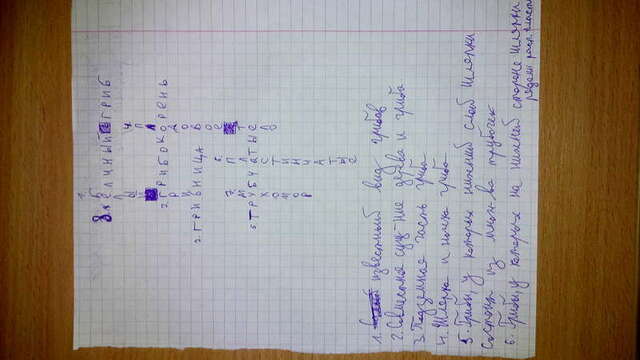 1. БЕЛЫЙ ГРИБ
8. ЕЛИНЫЙ ГРИБ
4. ПЛОДОВОЕ ТЕЛО
2. ГРИБОКОРЕНЬ
ГРИБНИЦА
6. ПЛАСТИНЧАТЫЕ
7. МУХОМОР
5. ТРУБЧАТЫЕ
1. известный вид грибов
2. Совместное сущ-ние дерева и гриба
3. Подземная часть гриба
4. Шляпка и ножка гриба
5. Грибы, у которых нижний слой шляпки
состоит из множ-ва трубочек
6. Грибы, у которых на нижней стороне шляпки
расп. пласт